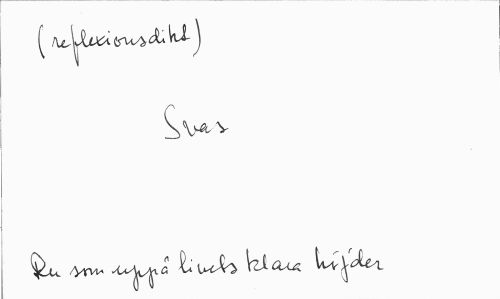 (reflexionsdikt)
Svar
Du som uppå livets klara höjder